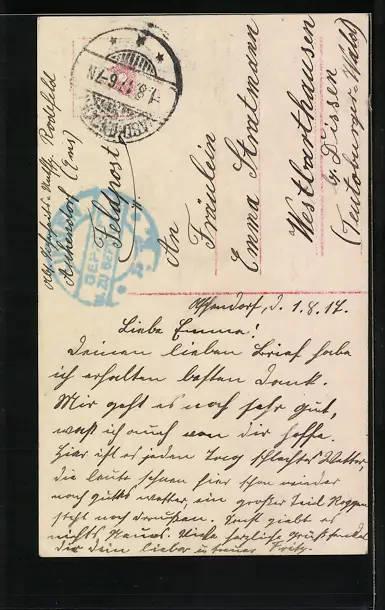 Feldpost
An
Fräulein
Emma Stratmann
Westbarthausen
b/ Dissen
(Teutoburger-Wald)
Aschendorf (Ems)
GEPR
ZU BEF
1.8.17.6-7N
Aschendorf, d. 1.8.17.
Liebe Emma!
Deinen lieben Brief habe
ich erhalten besten Dank.
Mir geht es noch sehr gut,
was ich auch von dir hoffe.
Hier ist es jeden Tag schlechtes Wetter,
die Leute sehnen hier schon wieder
nach gutes Wetter, ein großer Teil Roggen
steht noch draußen. Sonst giebt es
nichts Neues. Viele herzliche Grüße sendet
dir dein lieber u treuer Fritz.